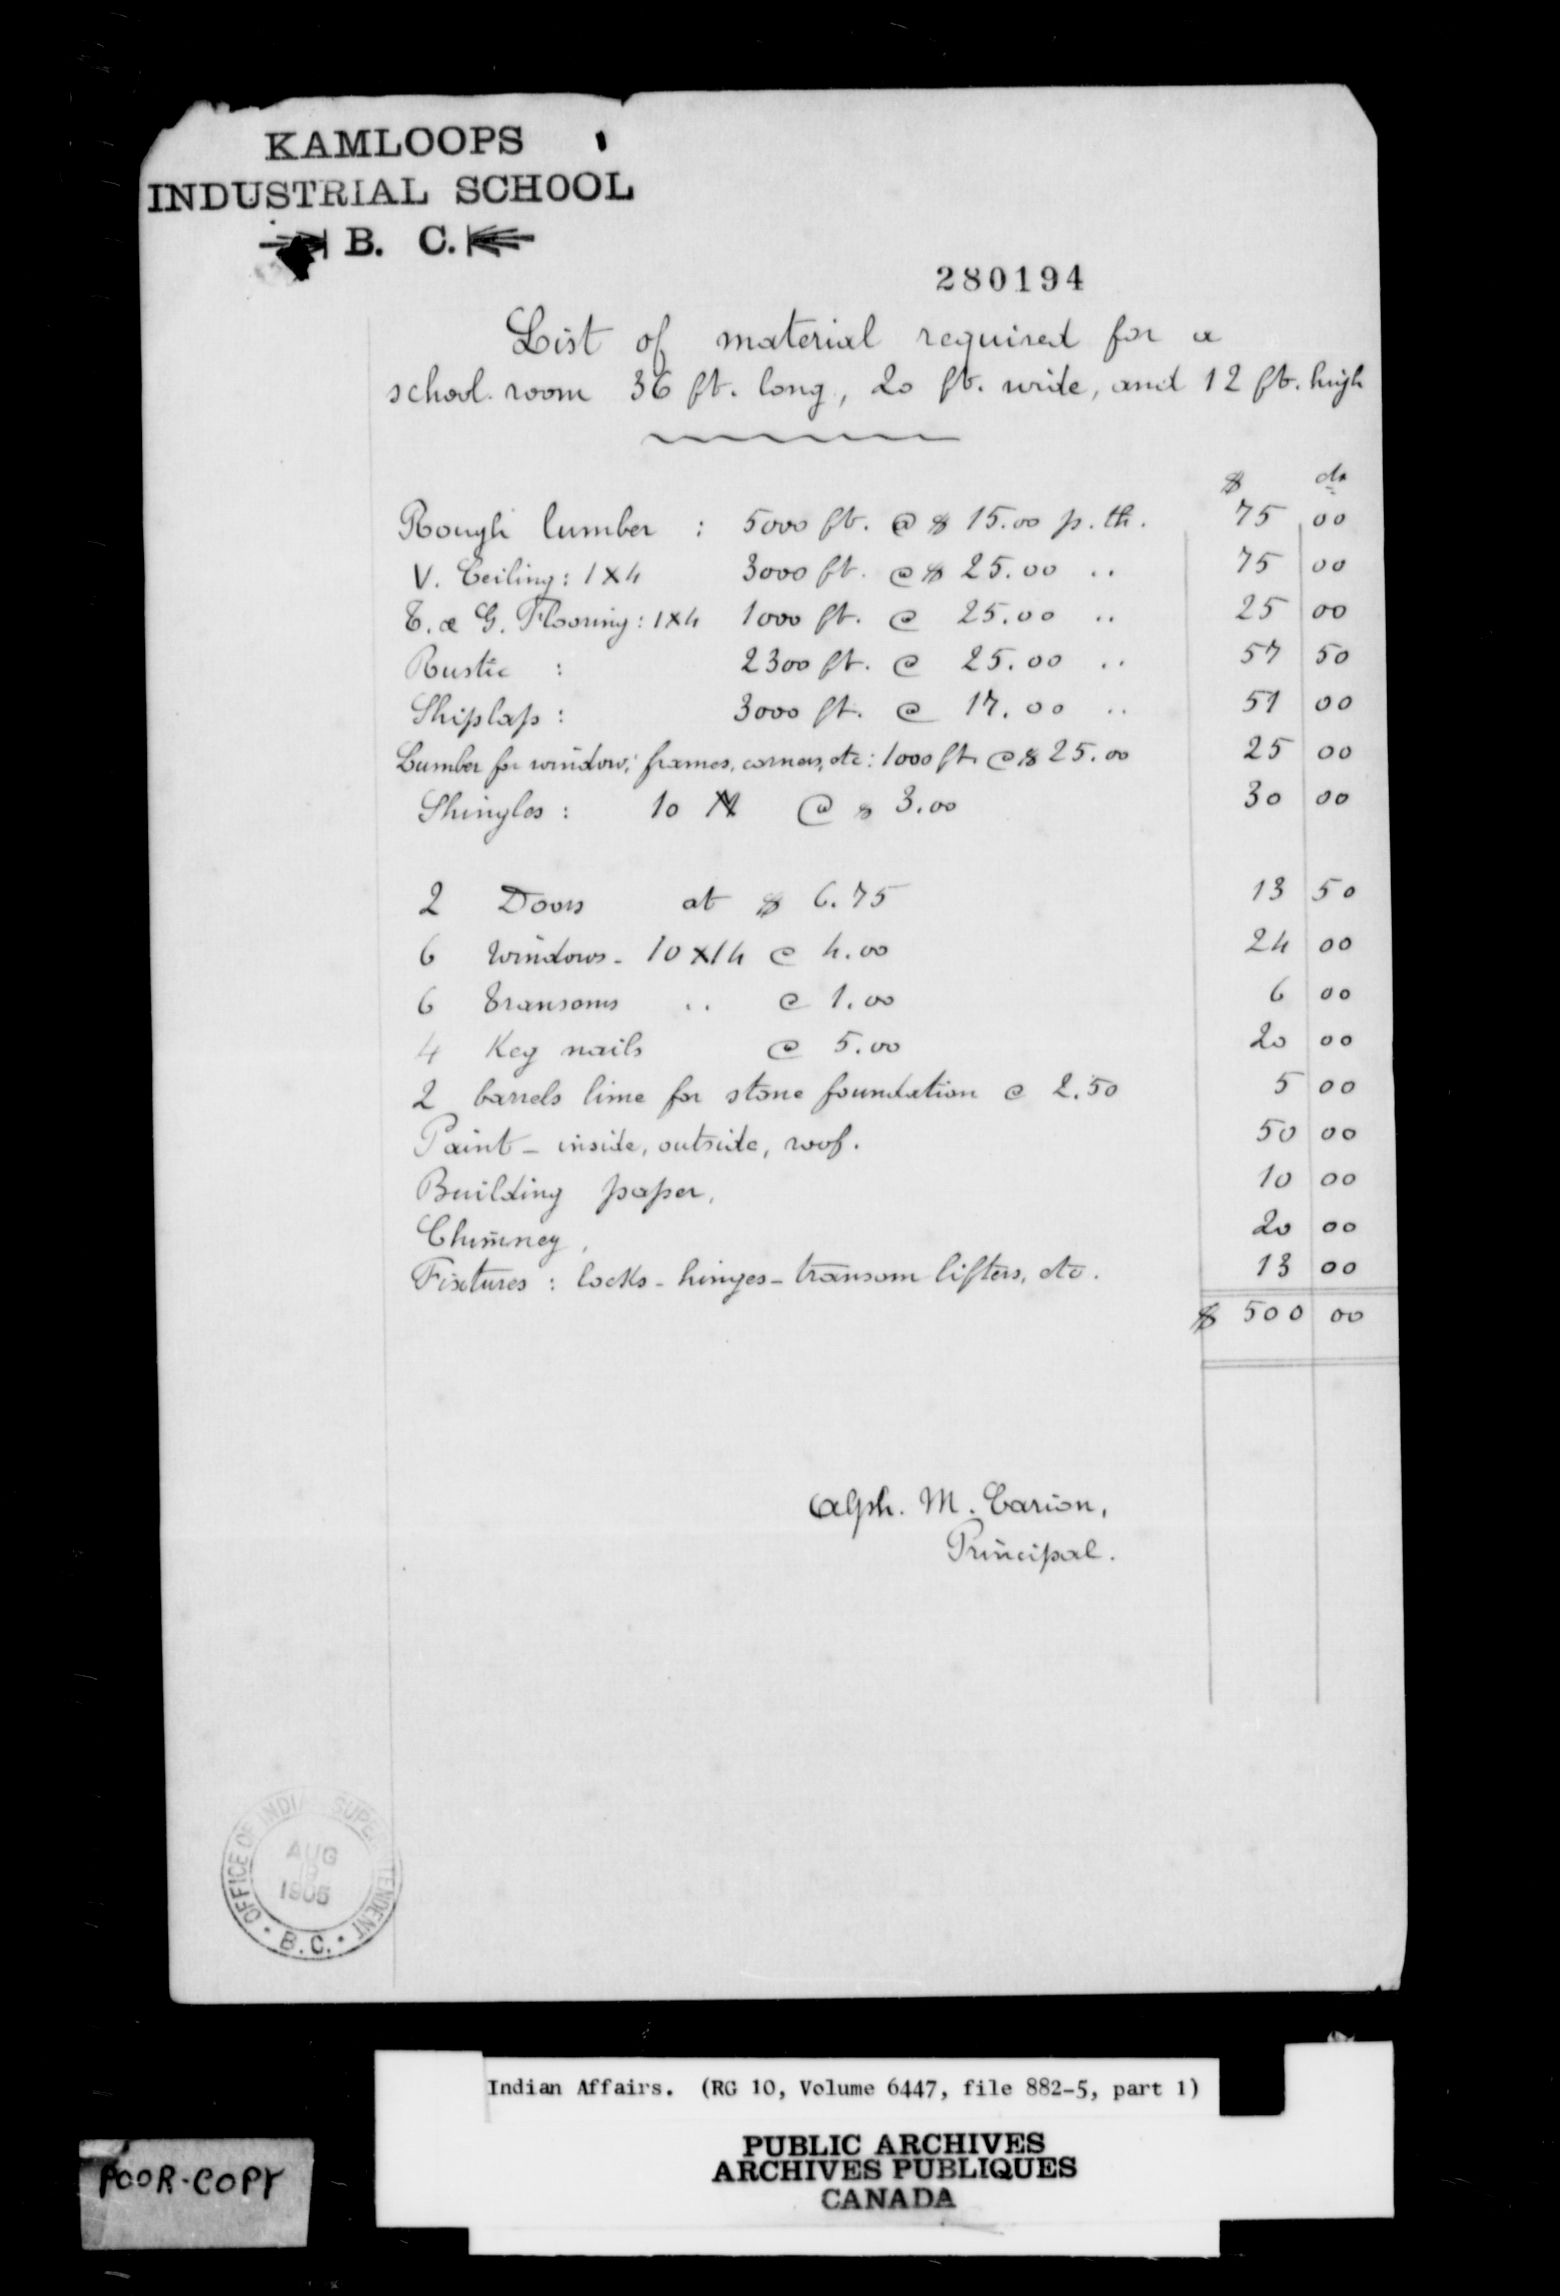 KAMLOOPS
INDUSTRIAL SCHOOL
B. C.
280194
List of material required for a
school-room 36 ft. long, 20 ft. wide, and 12 ft. high
$ cts
Rough lumber : 5000 ft. @ $ 15.00 p. th. 75 00
V. Ceiling: 1x4 3000 ft. @ $ 25.00 " 75 00
T. & G. Flooring: 1x4 1000 ft. @ 25.00 " 25 00
Rustic : 2300 ft. @ 25.00 " 57 50
Shiplap : 3000 ft. @ 17.00 " 51 00
Lumber for window, frames, corners, etc: 1000 ft @ $ 25.00 25 00
Shingles : 10 M @ $ 3.00 30 00
2 Doors at $ 6.75 13 50
6 Windows - 10x14 @ 4.00 24 00
6 Transoms " @ 1.00 6 00
4 Keg nails @ 5.00 20 00
2 barrels lime for stone foundation @ 2.50 5 00
Paint - inside, outside, roof. 50 00
Building paper, 10 00
Chimney, 20 00
Fixtures : locks - hinges - transom lifters, etc. 13 00
$ 500 00
Alph. M. Carion,
Principal.
OFFICE OF INDIAN SUPERINTENDENT
AUG
1905
B.C.
Indian Affairs. (RG 10, Volume 6447, file 882-5, part 1)
PUBLIC ARCHIVES
ARCHIVES PUBLIQUES
CANADA
POOR-COPY